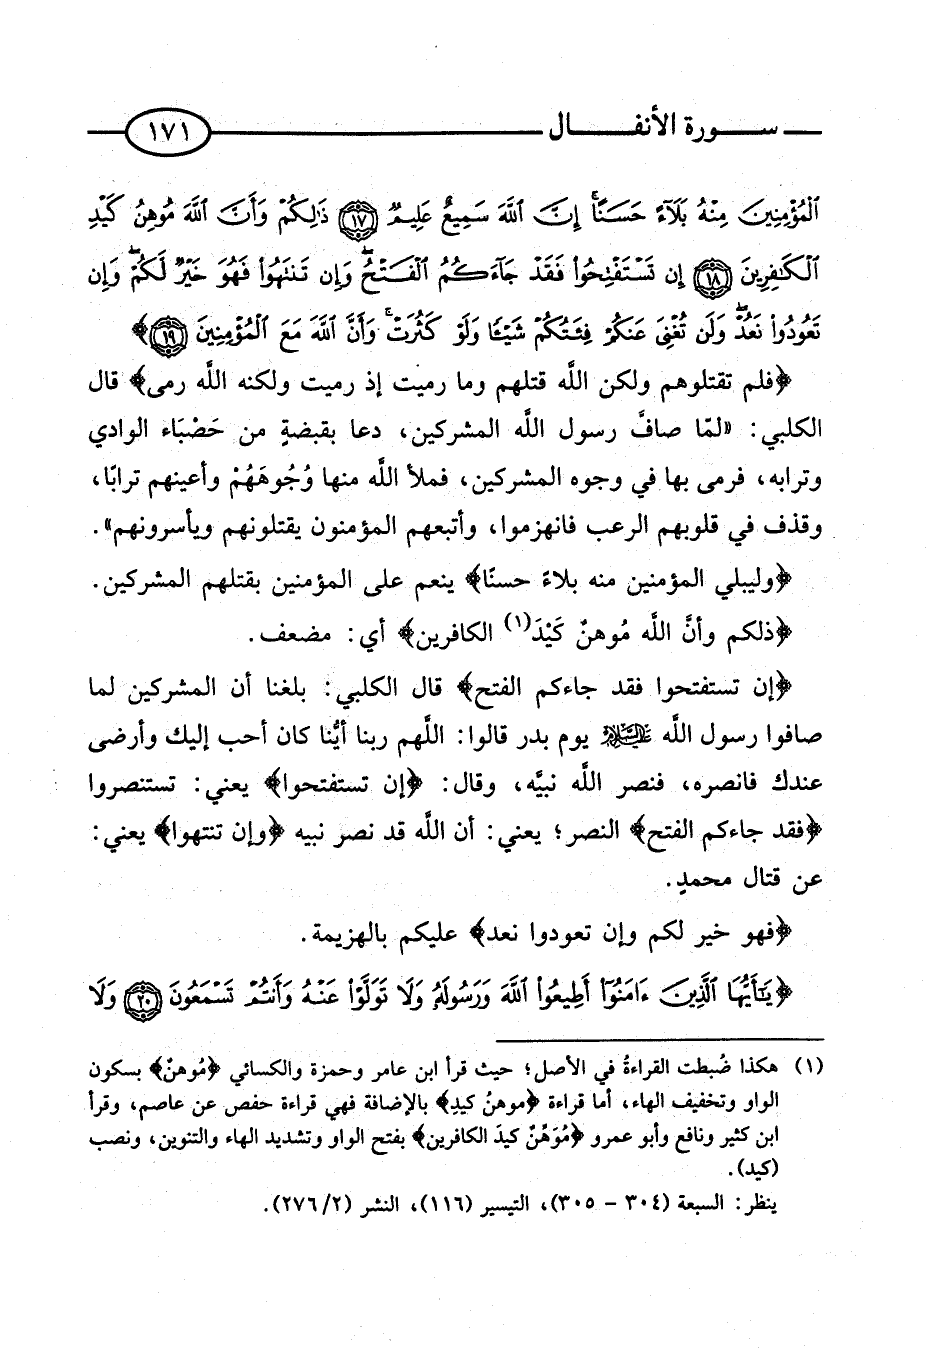 سورة الأنفال ١٧١
ٱلْمُؤْمِنِينَ مِنْهُ بَلَآءً حَسَنًاۚ إِنَّ ٱللَّهَ سَمِيعٌ عَلِيمٌ ١٧ ذَٰلِكُمْ وَأَنَّ ٱللَّهَ مُوهِنُ كَيْدِ
ٱلْكَٰفِرِينَ ١٨ إِن تَسْتَفْتِحُوا۟ فَقَدْ جَآءَكُمُ ٱلْفَتْحُۖ وَإِن تَنتَهُوا۟ فَهُوَ خَيْرٌ لَّكُمْۖ وَإِن
تَعُودُوا۟ نَعُدْۖ وَلَن تُغْنِىَ عَنكُمْ فِئَتُكُمْ شَيْـًٔا وَلَوْ كَثُرَتْۚ وَأَنَّ ٱللَّهَ مَعَ ٱلْمُؤْمِنِينَ ١٩﴾
﴿فلم تقتلوهم ولكن اللَّه قتلهم وما رميت إذ رميت ولكنه اللَّه رمى﴾ قال
الكلبي: «لمّا صافَّ رسول اللَّه المشركين، دعا بقبضةٍ من حَصْبَاء الوادي
وترابه، فرمى بها في وجوه المشركين، فملأ اللَّه منها وُجُوهَهُمْ وأعينهم ترابًا،
وقذف في قلوبهم الرعب فانهزموا، وأتبعهم المؤمنون يقتلونهم ويأسرونهم».
﴿وليبلي المؤمنين منه بلاءً حسنًا﴾ ينعم على المؤمنين بقتلهم المشركين.
﴿ذلكم وأنَّ اللَّه مُوهنٌ كَيْدَ(١) الكافرين﴾ أي: مضعف.
﴿إن تستفتحوا فقد جاءكم الفتح﴾ قال الكلبي: بلغنا أن المشركين لما
صافوا رسول اللَّه ﷺ يوم بدر قالوا: اللَّهم ربنا أيُّنا كان أحب إليك وأرضى
عندك فانصره، فنصر اللَّه نبيَّه، وقال: ﴿إن تستفتحوا﴾ يعني: تستنصروا
﴿فقد جاءكم الفتح﴾ النصر؛ يعني: أن اللَّه قد نصر نبيه ﴿وإن تنتهوا﴾ يعني:
عن قتال محمدٍ.
﴿فهو خير لكم وإن تعودوا نعد﴾ عليكم بالهزيمة.
﴿يَٰٓأَيُّهَا ٱلَّذِينَ ءَامَنُوٓا۟ أَطِيعُوا۟ ٱللَّهَ وَرَسُولَهُۥ وَلَا تَوَلَّوْا۟ عَنْهُ وَأَنتُمْ تَسْمَعُونَ ٢٠ وَلَا
(١) هكذا ضُبطت القراءةُ في الأصل؛ حيث قرأ ابن عامر وحمزة والكسائي ﴿مُوهنٌ﴾ بسكون
الواو وتخفيف الهاء، أما قراءة ﴿موهنُ كيدِ﴾ بالإضافة فهي قراءة حفص عن عاصم، وقرأ
ابن كثير ونافع وأبو عمرو ﴿مُوَهِّنٌ كيدَ الكافرين﴾ بفتح الواو وتشديد الهاء والتنوين، ونصب
(كيد).
ينظر: السبعة (٣٠٤ - ٣٠٥)، التيسير (١١٦)، النشر (٢/٢٧٦).